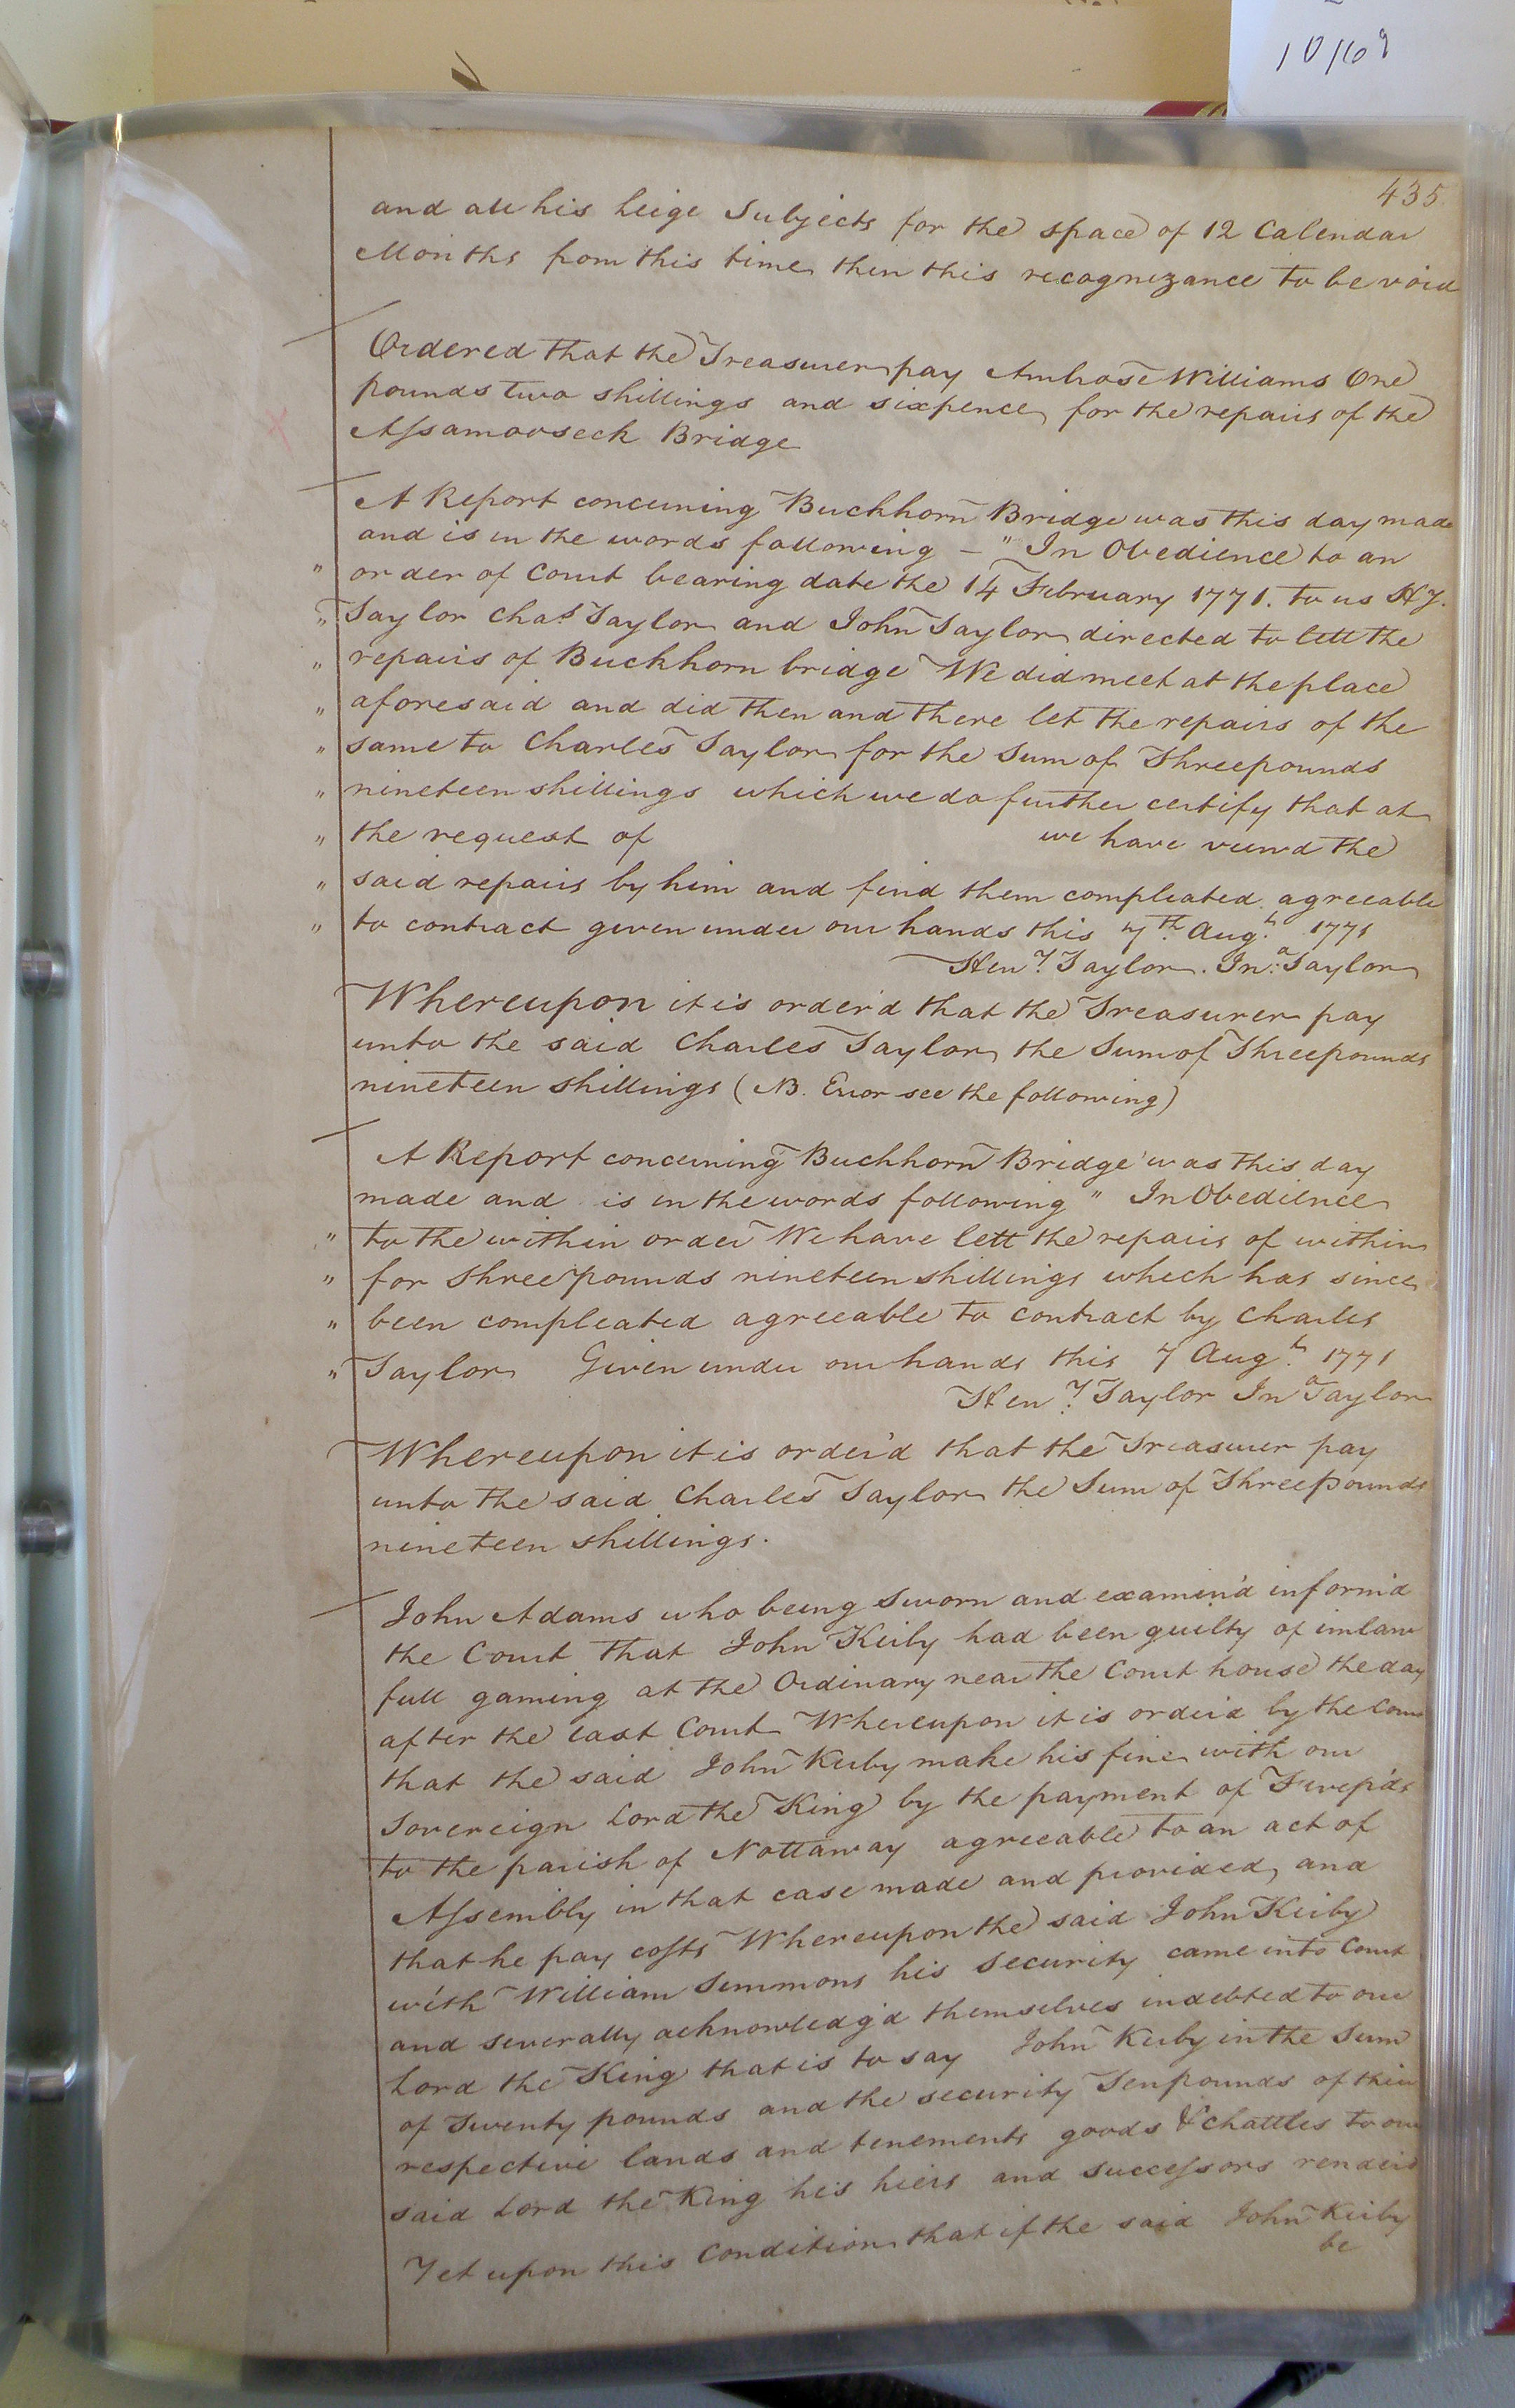 10/69
435
and all his leige Subjects for the space of 12 Calendar
Months from this time then this recognizance to be void
Ordered that the Treasurer pay Ambrose Williams One
pounds two shillings and sixpence for the repairs of the
Assamooseck Bridge
A Report concerning Buckhorn Bridge was this day made
and is in the words following — " In Obedience to an
" order of Court bearing date the 14 February 1771. to us Hy.
" Taylor Chas Taylor and John Taylor directed to lett the
" repairs of Buckhorn bridge We did meet at the place
" aforesaid and did then and there let the repairs of the
" same to Charles Taylor for the Sum of Three pounds
" nineteen shillings which we do further certify that at
" the request of we have viewd the
" said repairs by him and find them compleated agreeable
" to contract given under our hands this 7th Augt 1771
Heny Taylor. Jno Taylor
Whereupon it is order'd that the Treasurer pay
unto the said Charles Taylor the Sum of Three pounds
nineteen shillings (NB. Error see the following)
A Report concerning Buckhorn Bridge was this day
made and is in the words following " In Obedience
" to the within order We have lett the repairs of within
" for three pounds nineteen shillings which has since
" been compleated agreeable to contract by Charles
" Taylor Given under our hands this 7 Augt 1771
Heny Taylor Jno Taylor
Whereupon it is order'd that the Treasurer pay
unto the said Charles Taylor the Sum of Three pounds
nineteen shillings.
John Adams who being sworn and examin'd inform'd
the Court that John Kirby had been guilty of unlaw
full gaming at the Ordinary near the Court house the day
after the last Court Whereupon it is order'd by the Court
that the said John Kirby make his fine with our
Sovereign Lord the King by the payment of Five p'ds
to the parish of Nottaway agreeable to an act of
Assembly in that case made and provided, and
that he pay costs Whereupon the said John Kirby
with William Simmons his security came into Court
and severally acknowledg'd themselves indebted to our
Lord the King that is to say John Kirby in the Sum
of Twenty pounds and the security Ten pounds of their
respective lands and tenements goods & chattles to our
said Lord the King his hiers and successors render'd
Yet upon this Condition that if the said John Kirby
be